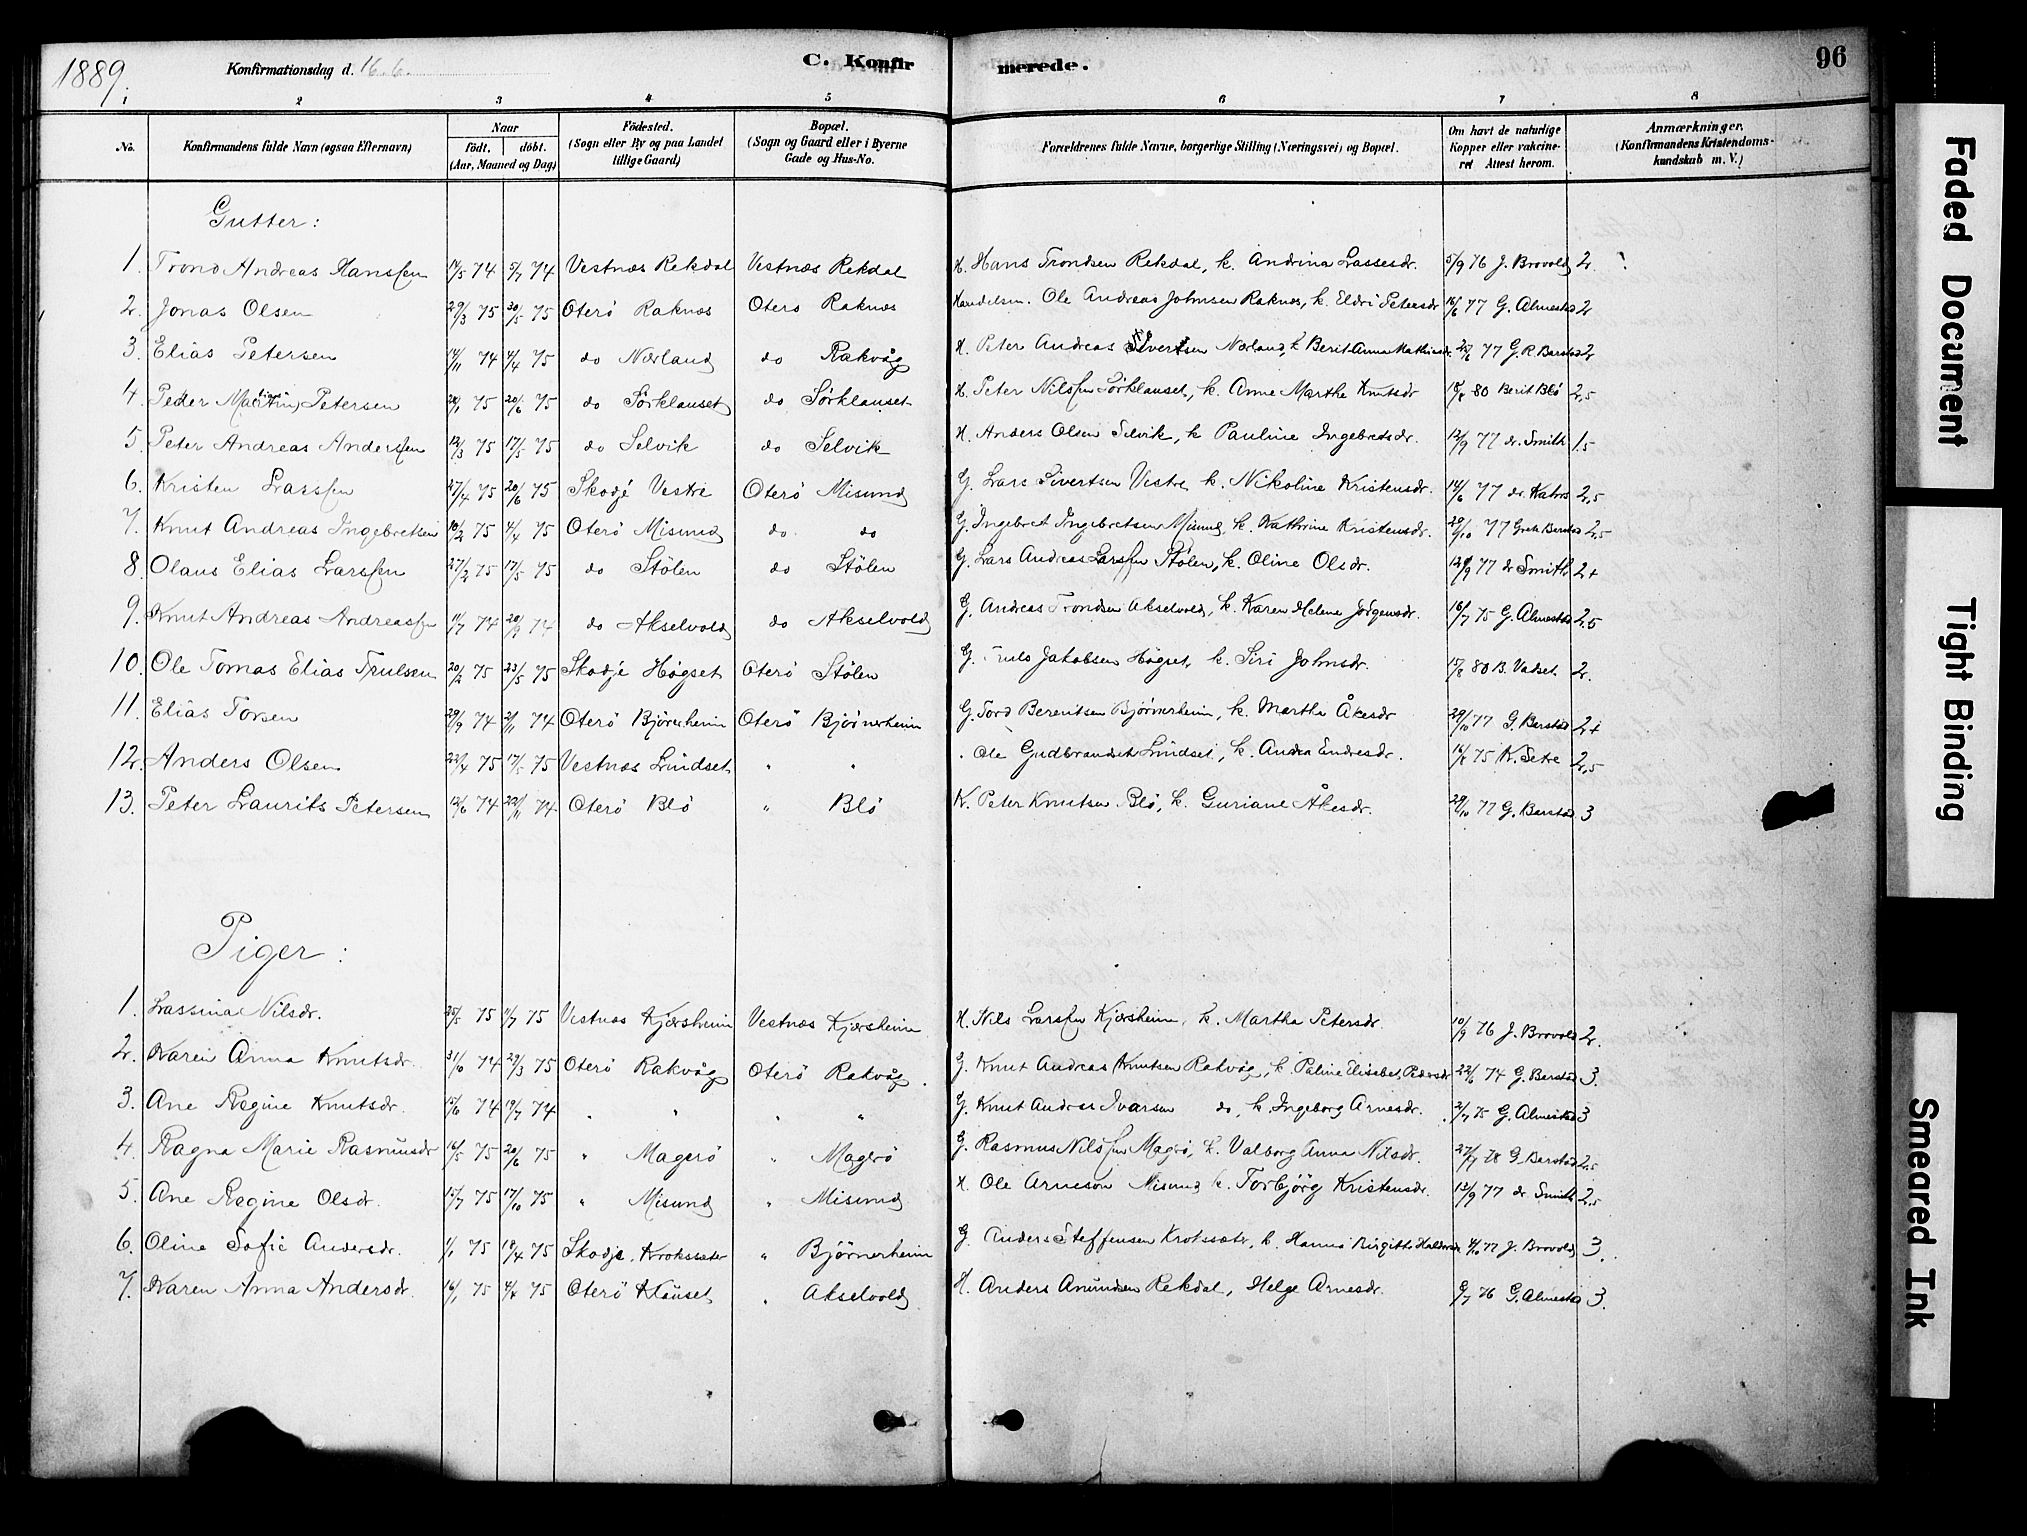 1889. Konfirmationsdag d. 16.6. C. Konfirmerede. 96
1 2 3 4 5 6 7 8
No. Konfirmandens fulde Navn (ogsaa Efternavn) Naar født. døbt. (Aar, Maaned og Dag) Fødested. (Sogn eller By og paa Landet tillige Gaard) Bopæl. (Sogn og Gaard eller i Byerne Gade og Hus-No. Forældrenes fulde Navne, borgerlige Stilling (Næringsvei) og Bopæl. Om havt de naturlige Kopper eller vakcineret Attest herom. Anmærkninger. (Konfirmandens Kristendomskundskab m. V.)
Gutter:
1. Trond Andreas Hanssen 17/5 74 5/7 74 Vestnæs Rekdal Vestnæs Rekdal H. Hans Trondsen Rekdal, k. Andrina Lassesdr. 5/9 76 J. Brovold 2
2. Jonas Olsen 29/3 75 30/5 75 Oterö Raknæs Oterö Raknæs Handelsm. Ole Andreas Johnsen Raknæs, k. Eldri Petersdr 16/6 77 G. Almestad 2
3. Elias Petersen 74 4/4 75 do Nerland do Rakvåg H. Peter Andreas Sivertsen Nerland, k Berit Anna Mathiasdr 77 G. R Barstad 2
4. Peder Petersen 75 20/6 75 do Sörklauset do Sörklauset H. Peter Nilssen Sörklauset, k. Anne Marthe Knutsdr 80 Berit Blö 2,5
5. Peter Andreas Anderssen 12/3 75 17/5 75 do Selvik do Selvik H. Anders Olsen Selvik, k Pauline Ingebretsdr. 12/9 77 dr. Smith 1,5
6. Kristen Larssen 27/4 75 20/6 75 Skodje Vestre Oterö Misund G. Lars Sivertsen Vestre k. Nikoline Kristensdr. 14/6 77 dr. Kahrs 2,5
7. Knut Andreas Ingebretsen 10/2 75 4/4 75 Oterö Misund do do G. Ingebret Ingebretsen Misund, k. Kathrine Kristensdr. 29/10 77 Barstad 2,5
8. Olaus Elias Larssen 27/2 75 17/5 75 do Stölen do Stölen G. Lars Andreas Larssen Stölen, k. Oline Olsdr. 12/9 77 dr Smith 2+
9. Knut Andreas Andreassen 11/7 74 20/9 74 do Akselvold do Akselvold G. Andreas Trondsen Akselvold, k. Karen Helene Jörgensdr. 16/7 75 G. Almestad 2,5
10. Ole Tomas Elias Trulsen 20/2 75 23/5 75 Skodje Högset Oterö Stölen G. Truls Jakobsen Högset, k. Siri Johnsdr. 15/8 80 B. Vadset 2.
11. Elias Torsen 29/9 74 74 Oterö Björnerheim Oterö Björnerheim G. Tord Berentsen Björnerheim, k. Martha Åkesdr 29/10 77 G. Barstad 2+
12. Anders Olsen 22/4 75 17/5 75 Vestnæs Lindset " " Ole Gudbrandsen Lindset, k. Andrea Endresdr. 75 K. Setre 2,5
13. Peter Laurits Petersen 12/6 74 22/11 74 Oterö Blö " Blö K. Peter Knutsen Blö, k. Guriane Åkesdr. 29/10 77 G. Barstad 3
Piger:
1. Lassina Nilsdr. 25/5 75 11/7 75 Vestnæs Kjersheim Vestnæs Kjersheim H. Nils Larssen Kjersheim, k. Martha Petersdr. 10/9 76 J. Brovold 2.
2. Karen Anna Knutsdr. 74 29/3 75 Oterö Rakvåg Oterö Rakvåg. G. Knut Andreas Knutsen Rakvåg, k. Paline Elisabet Pedersdr 22/6 74 G. Barstad 3.
3. Ane Regine Knutsdr. 15/6 74 19/7 74 " " " " G. Knut Andreas Ivarsen do, k. Ingeborg Arnesdr. 2/7 75 G. Almestad 3
4. Ragna Marie Rasmusdr 16/5 75 20/6 75 " Magerö " Magerö G. Rasmus Nilssen Magerö, k. Valborg Anna Nilsdr. 27/7 78 G. Barstad 2,5
5. Ane Regine Olsdr. 15/7 75 17/10 75 " Misund " Misund H. Ole Arneson Misund k. Torbjörg Kristensdr. 12/9 77 dr. Smith 2,5
6. Oline Sofie Andersdr. 1/1 75 18/4 75 Skodje, Krokssæter " Björnerheim G. Anders Steffensen Krokssæter, k. Hanna Birgitte Haldorsdr 77 J. Brovold 3.
7. Karen Anna Andersdr. 16/1 75 4/4 75 Oterö Klauset " Akselvold H. Anders Amundsen Rekdal, Helge Arnesdr. 9/7 76 G. Almestad 3.
Faded Document
Tight Binding
Smeared Ink